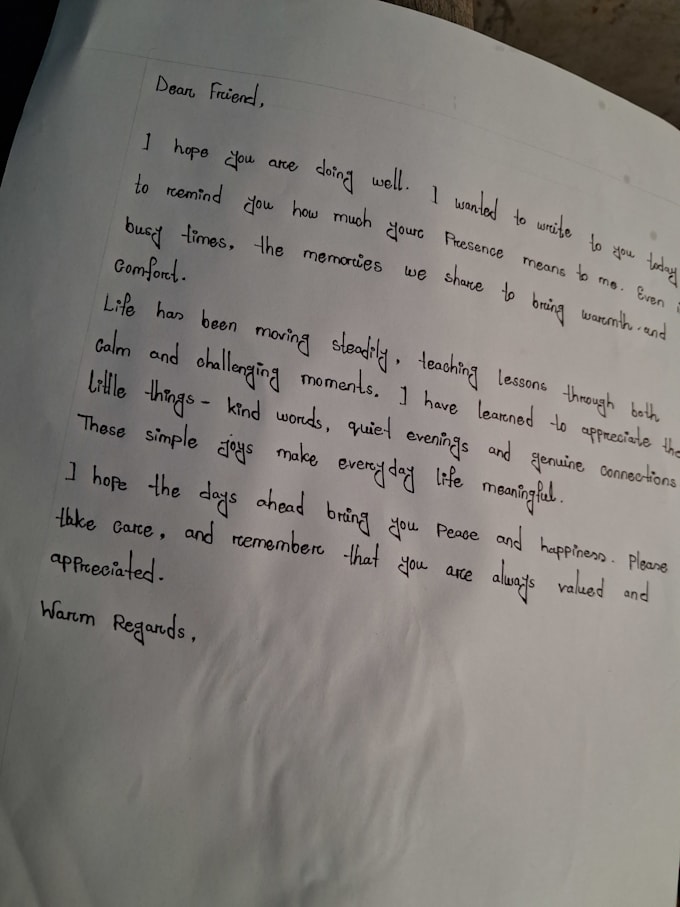 Dear Friend,
I hope you are doing well. I wanted to write to you today
to remind you how much your Presence means to me. Even
busy times, the memories we share to bring warmth and
Comfort.
Life has been moving steadily, teaching lessons through both
calm and challenging moments. I have learned to appreciate the
little things - kind words, quiet evenings and genuine connections
These simple joys make everyday life meaningful.
I hope the days ahead bring you Peace and happiness. Please
take care, and remember that you are always valued and
appreciated.
Warm Regards,